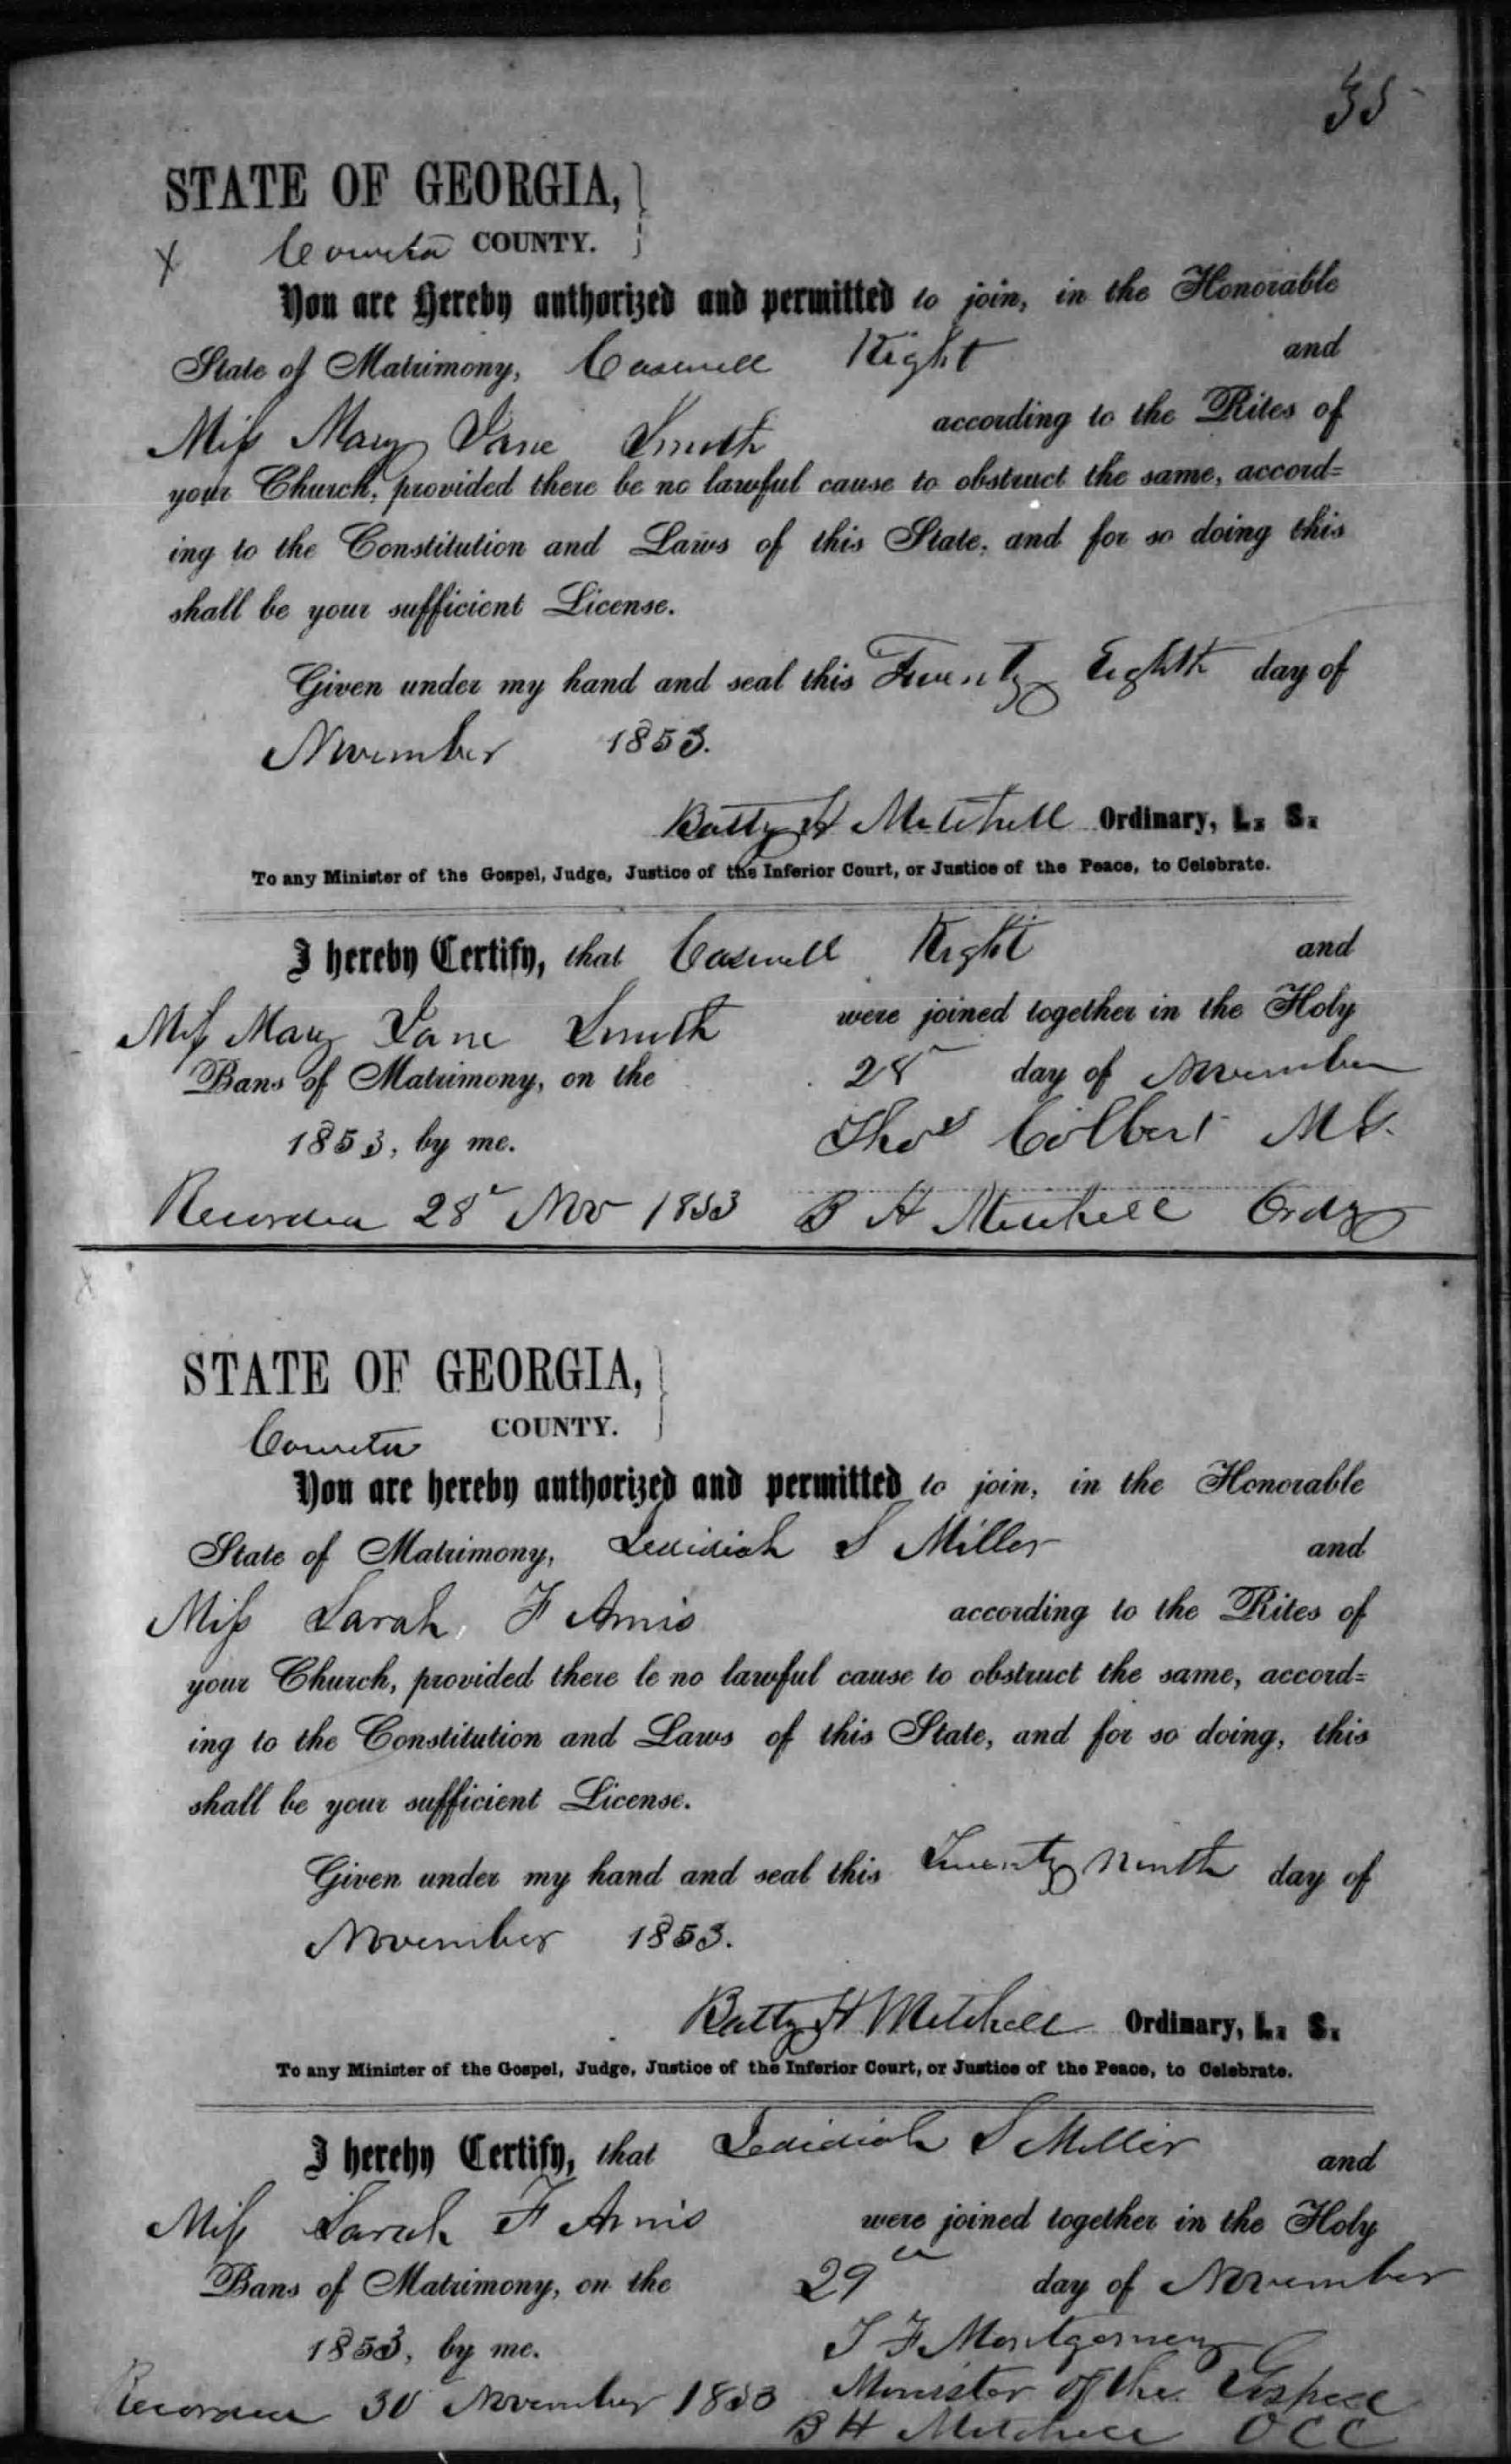 35
STATE OF GEORGIA,
x Coweta COUNTY.
You are Hereby authorized and permitted to join, in the Honorable
State of Matrimony, Caswell Kight and
Miss Mary Jane Smith according to the Rites of
your Church, provided there be no lawful cause to obstruct the same, accord=
ing to the Constitution and Laws of this State, and for so doing this
shall be your sufficient License.
Given under my hand and seal this Twenty Eighth day of
November 1853.
Batty H Mitchell Ordinary, L. S.
To any Minister of the Gospel, Judge, Justice of the Inferior Court, or Justice of the Peace, to Celebrate.
I hereby Certify, that Caswell Kight and
Miss Mary Jane Smith were joined together in the Holy
Bans of Matrimony, on the 28 day of November
1853, by me. Thos Colbert M G.
Recorded 28 Nov 1853 B H Mitchell Ordy
x
STATE OF GEORGIA,
Coweta COUNTY.
You are hereby authorized and permitted to join, in the Honorable
State of Matrimony, Jedidiah S Miller and
Miss Sarah F Amis according to the Rites of
your Church, provided there be no lawful cause to obstruct the same, accord=
ing to the Constitution and Laws of this State, and for so doing, this
shall be your sufficient License.
Given under my hand and seal this Twenty Ninth day of
November 1853.
Batty H Mitchell Ordinary, L. S.
To any Minister of the Gospel, Judge, Justice of the Inferior Court, or Justice of the Peace, to Celebrate.
I hereby Certify, that Jedidiah S Miller and
Miss Sarah F Amis were joined together in the Holy
Bans of Matrimony, on the 29th day of November
1853, by me. J F Montgomery
Minister of the Gospel
Recorded 30 November 1853 B H Mitchell O C C